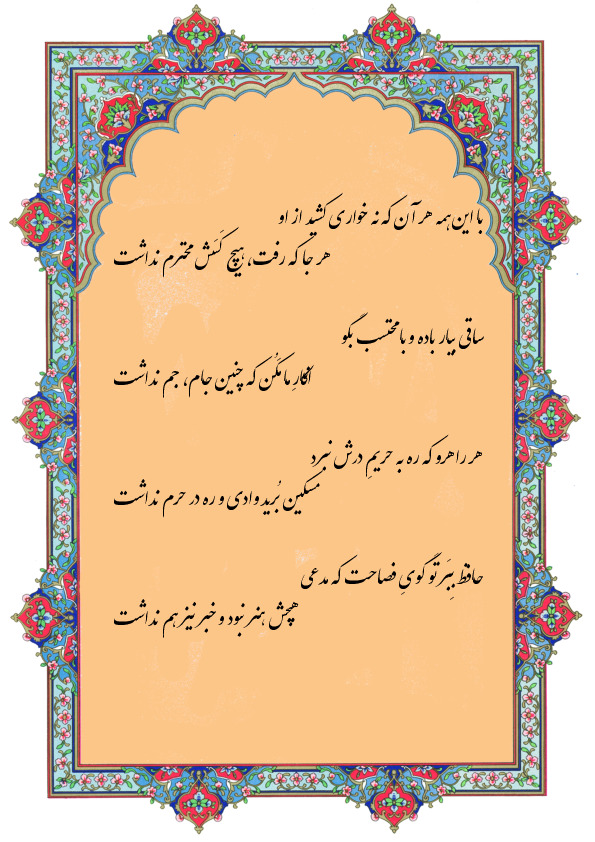 با این همه هر آن که نه خواری کشید از او
هر جا که رفت، هیچ کَسَش محترم نداشت
ساقی بیار باده و با محتسب بگو
انکارِ ما مَکُن که چنین جام، جم نداشت
هر راهرو که ره به حریمِ درش نبرد
مسکین بُرید وادی و ره در حرم نداشت
حافظ بِبَر تو گویِ فصاحت که مدعی
هیچش هنر نبود و خبر نیز هم نداشت